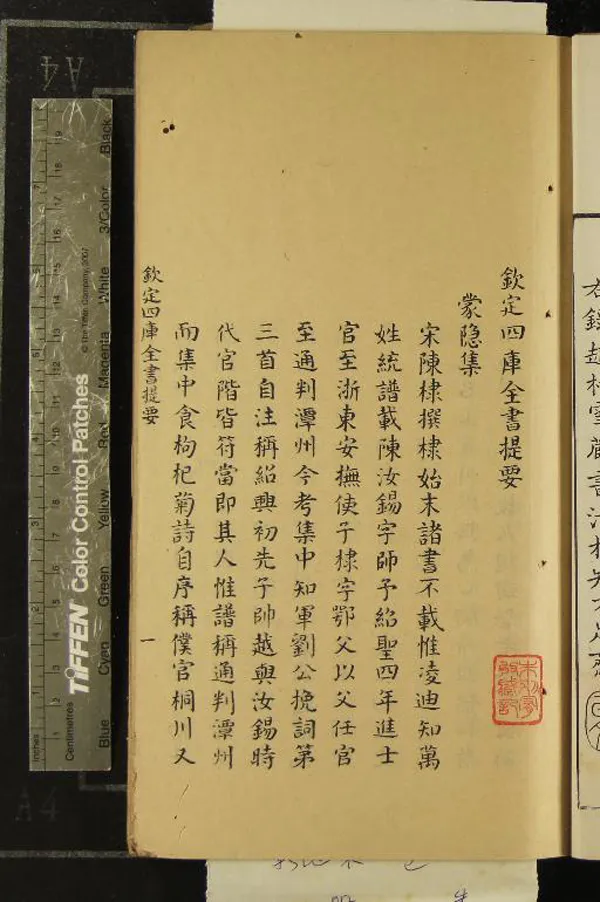 欽定四庫全書提要
蒙隐集
宋陳棣撰棣始末諸書不載惟凌迪知萬
姓統譜載陳汝錫字師予紹聖四年進士
官至浙東安撫使子棣字鄂父以父任官
至通判潭州今考集中知軍劉公挽詞第
三首自注稱紹興初先子帥越與汝錫時
代官階皆符當即其人惟譜稱通判潭州
而集中食枸杞菊詩自序稱僕官桐川又
欽定四庫全書提要
一
A4
A4
TIFFEN Color Control Patches
© The Tiffen Company, 2007
Blue Cyan Green Yellow Red Magenta White 3/Color Black
Inches
Centimetres
1 2 3 4 5 6 7 8 9 10 11 12 13 14 15 16 17 18 19